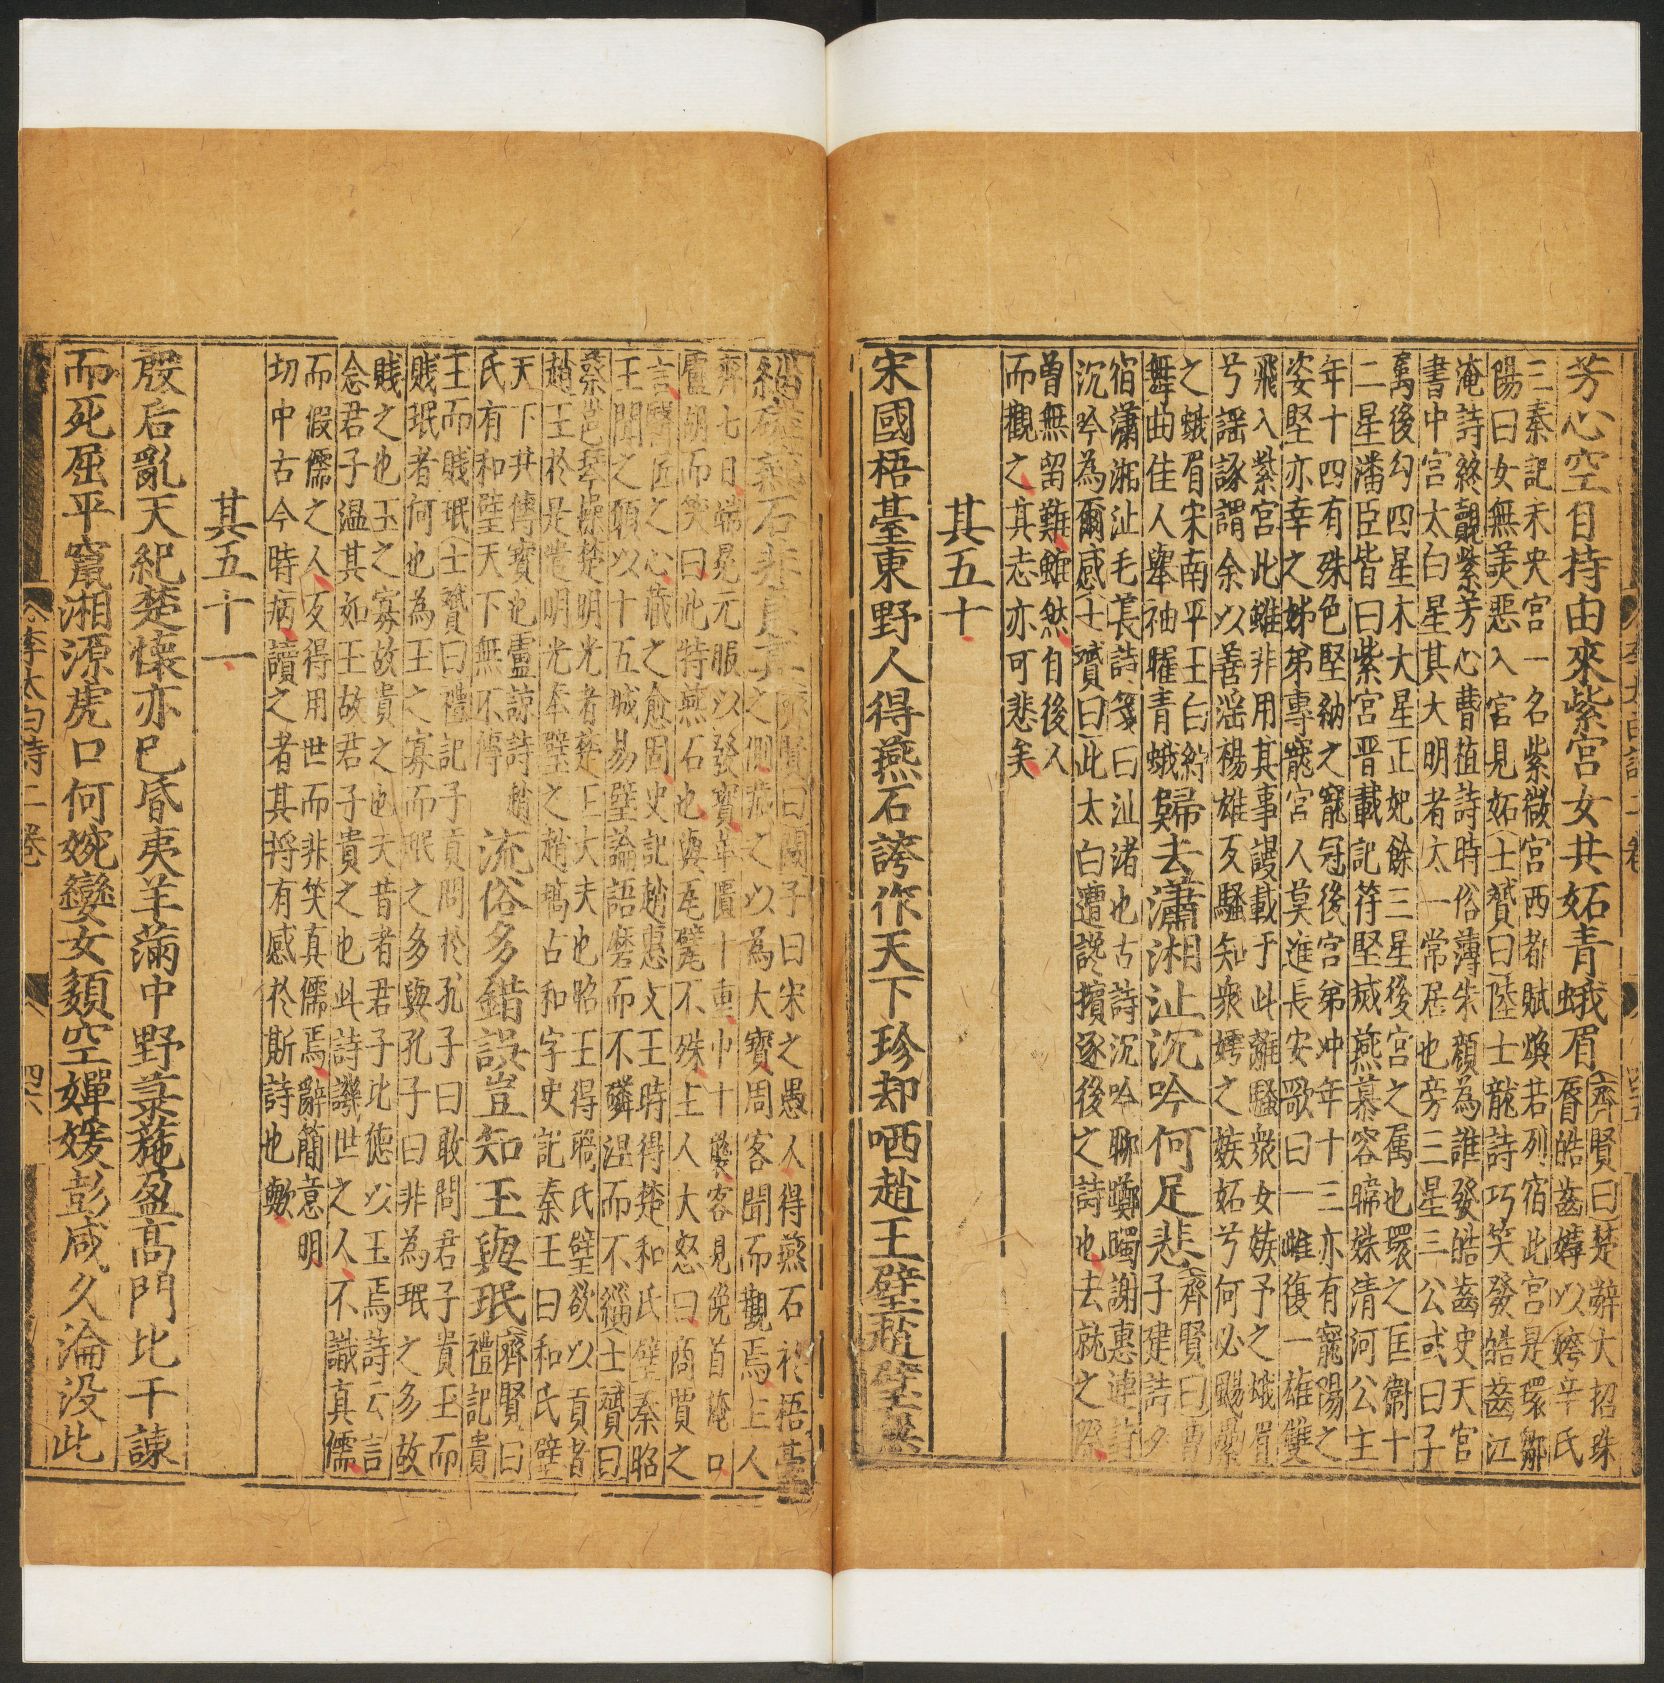 芳心空自持由來紫宮女共妬青蛾眉
齊賢曰楚辭大招朱
脣皓齒嫭以姱辛氏
三秦記未央宮一名紫微宮西都賦煥若列宿此宮是環鄒
陽曰女無美惡入宮見妬士贇曰陸士龍詩巧笑發皓齒江
淹詩終覿紫芳心曹植詩時俗薄朱顔為誰發皓齒史天官
書中宮太白星其大明者太一常居也旁三星三公或曰子
萬後勾四星木大星正妃餘三星後宮之属也環之匡衛十
二星潘臣皆曰紫宮晋載記符堅㓕燕慕容暐姝清河公主
年十四有殊色堅納之寵冠後宮弟冲年十三亦有寵陽之
姿堅亦幸之姊弟專寵宮人莫進長安歌曰一雌復一雄雙
飛入紫宮此雖非用其事謾載于此離騷衆女嫉予之蛾眉
兮謡諑謂余以善淫楊雄反騷知衆嫮之嫉妬兮何必颺纍
之蛾眉宋南平王白紵
舞曲佳人舉袖曜青蛾
歸去瀟湘沚沉吟何足悲
齊賢曰曹
子建詩夕
宿瀟湘沚毛萇詩箋曰沚渚也古詩沉吟聊躑躅謝惠連詩
沉吟為爾感士贇曰此太白遭讒擯逐後之詩也去就之際
曽無留難雖然自後人
而觀之其志亦可悲矣
其五十
宋國梧臺東野人得燕石誇作天下珍却哂趙王璧趙璧無
緇磷燕石非貞真
齊賢曰闞子曰宋之愚人得燕石於梧臺
之側藏之以為大寶周客聞而觀焉主人
齊七日端冕元服以發寶華匱十重巾十襲客見俛首掩口
盧胡而笑曰此特燕石也與瓦甓不殊主人大怒曰商賈之
言醫匠之心藏之愈固史記趙惠文王時得楚和氏璧秦昭
王聞之願以十五城易璧論語磨而不磷涅而不緇士贇曰
蔡邕琴操楚明光者楚王大夫也昭王得䃲氏璧欲以貢者
趙王於是遣明光奉璧之趙搞古和字史記秦王曰和氏璧
天下共傳寶也盧諒詩趙
氏有和璧天下無不傳
流俗多錯誤豈知玉與珉
齊賢曰
禮記貴
王而賤珉士贇曰禮記子貢問於孔子曰敢問君子貴玉而
賤珉者何也為王之寡而珉之多與孔子曰非為珉之多故
賤之也玉之寡故貴之也夫昔者君子比德以玉焉詩云言
念君子温其如玉故君子貴之也此詩譏世之人不識真儒
而假儒之人反得用世而非笑真儒焉辭簡意明
切中古今時病讀之者其将有感於斯詩也歟
其五十一
殷后亂天紀楚懷亦已昏夷羊滿中野菉葹盈高門比干諫
而死屈平竄湘源虎口何婉孌女嬃空嬋媛彭咸久淪没此
李太白詩二卷
四六